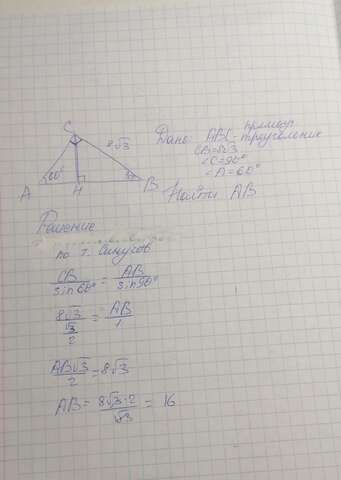 C
8√3
60°
A
H
B
Дано: ABC - прямоуг.
треугольник
CB=8√3
∠C=90°
∠A=60°
Найти AB
Решение
по т. Синусов
CB/sin60° = AB/sin90°
8√3/(√3/2) = AB/1
AB√3/2 = 8√3
AB = 8√3·2/√3 = 16